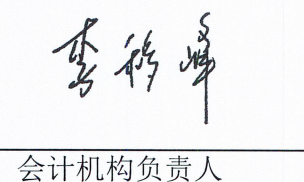 李移峰
会计机构负责人